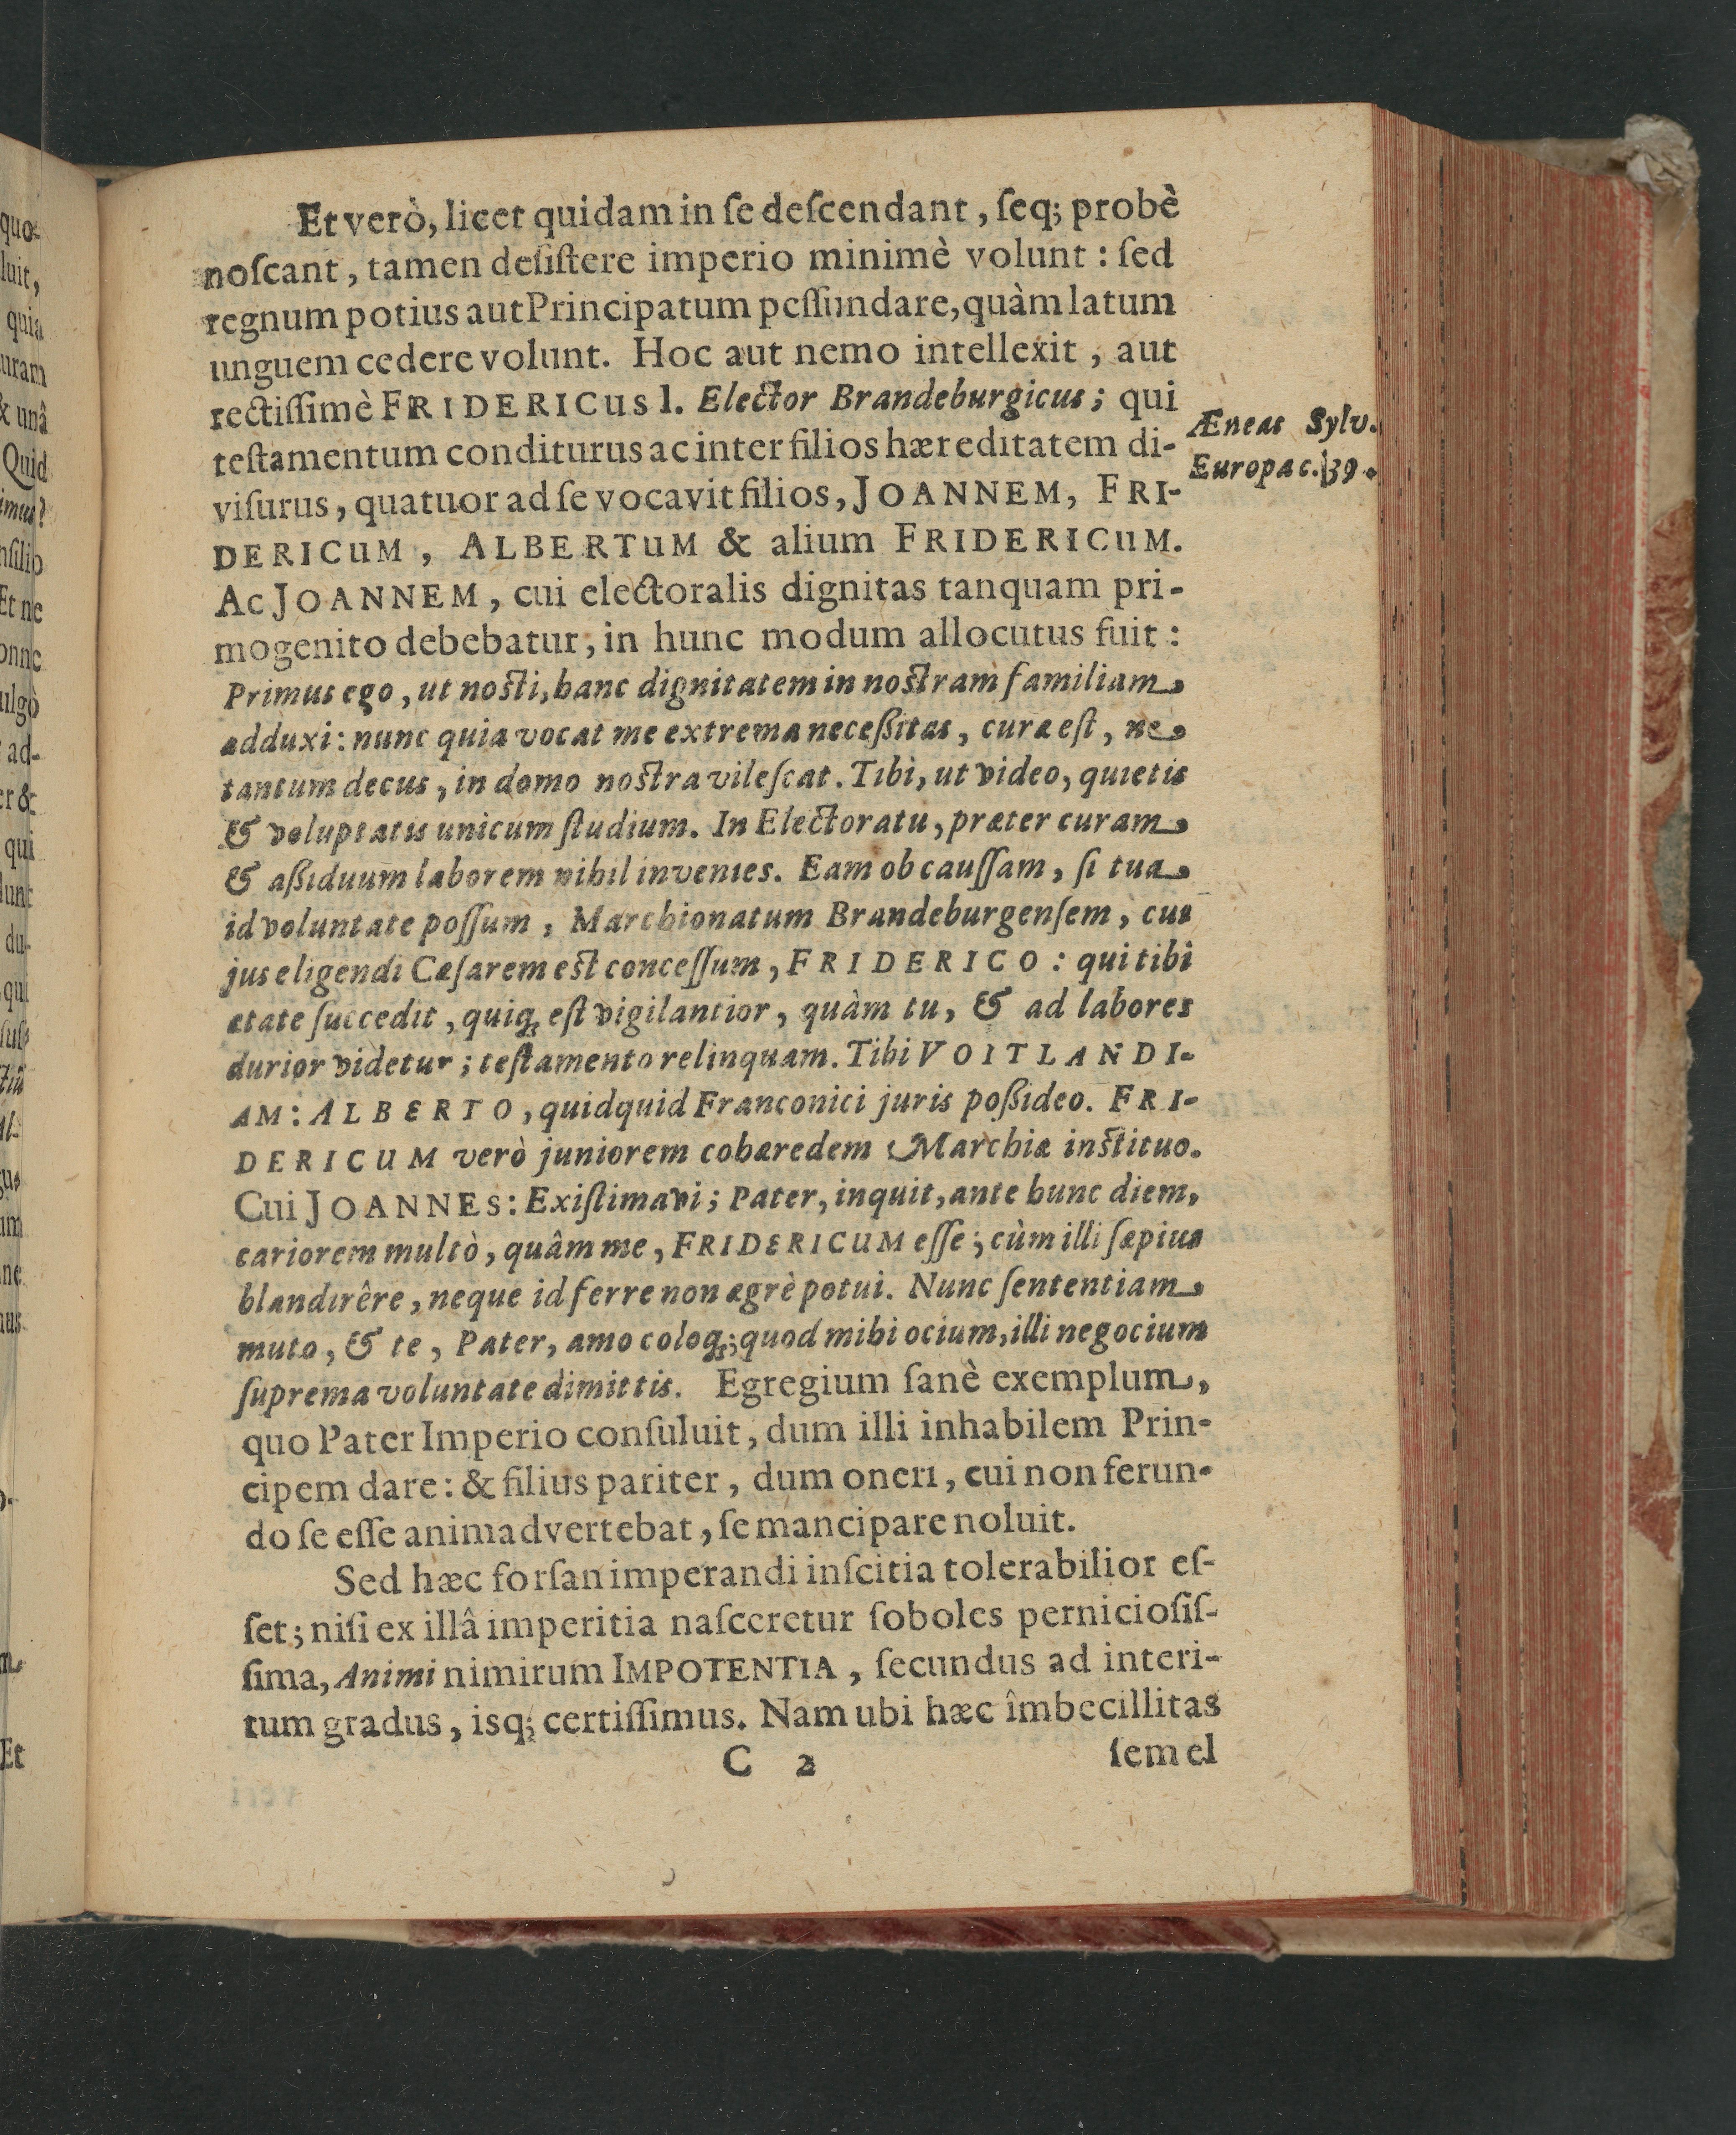 Et verò, licet quidam in ſe deſcendant, ſeq; probè
noſcant, tamen deſiſtere imperio minimè volunt: ſed
regnum potius aut Principatum peſſundare, quàm latum
unguem cedere volunt. Hoc aut nemo intellexit, aut
rectiſſimè FRIDERICus I. Elector Brandeburgicus; qui
teſtamentum conditurus ac inter filios hæreditatem di-
viſurus, quatuor ad ſe vocavit filios, JOANNEM, FRI-
DERICuM, ALBERTuM & alium FRIDERICuM.
Ac JOANNEM, cui electoralis dignitas tanquam pri-
mogenito debebatur, in hunc modum allocutus fuit:
Primus ego, ut noſti, hanc dignitatem in noſtram familiam
adduxi: nunc quia vocat me extrema neceßitas, cura eſt, ne
tantum decus, in domo noſtra vileſcat. Tibi, ut video, quietis
& voluptatis unicum ſtudium. In Electoratu, præter curam
& aßiduum laborem nihil invenies. Eam ob cauſſam, ſi tua
id voluntate poſſum, Marchionatum Brandeburgenſem, cui
jus eligendi Cæſarem eſt conceſſum, FRIDERICO: qui tibi
ætate ſuccedit, quiq; eſt vigilantior, quàm tu, & ad labores
durior videtur; teſtamento relinquam. Tibi VOITLANDI-
AM: ALBERTO, quidquid Franconici juris poßideo. FRI-
DERICUM verò juniorem cohæredem Marchiæ inſtituo.
Cui JOANNES: Exiſtimavi; Pater, inquit, ante hunc diem,
cariorem multò, quâm me, FRIDERICUM eſſe; cùm illi ſæpius
blandirêre, neque id ferre non ægrè potui. Nunc ſententiam
muto, & te, Pater, amo coloq;; quod mihi ocium, illi negocium
ſuprema voluntate dimittis. Egregium ſanè exemplum,
quo Pater Imperio conſuluit, dum illi inhabilem Prin-
cipem dare: & filius pariter, dum oneri, cui non ferun-
do ſe eſſe animadvertebat, ſe mancipare noluit.
Sed hæc forſan imperandi inſcitia tolerabilior eſ-
ſet; niſi ex illâ imperitia naſceretur ſoboles pernicioſiſ-
ſima, Animi nimirum IMPOTENTIA, ſecundus ad interi-
tum gradus, isq; certiſſimus. Nam ubi hæc îmbecillitas
C 2 ſemel
Æneas Sylv.
Europa c. 39.
quo-
luit,
quia
uram
& unâ
Quid
imus?
nſilio
Et ne
onne
ulgò
ad-
er &
qui
lunt
du-
qui
um
ne
Et